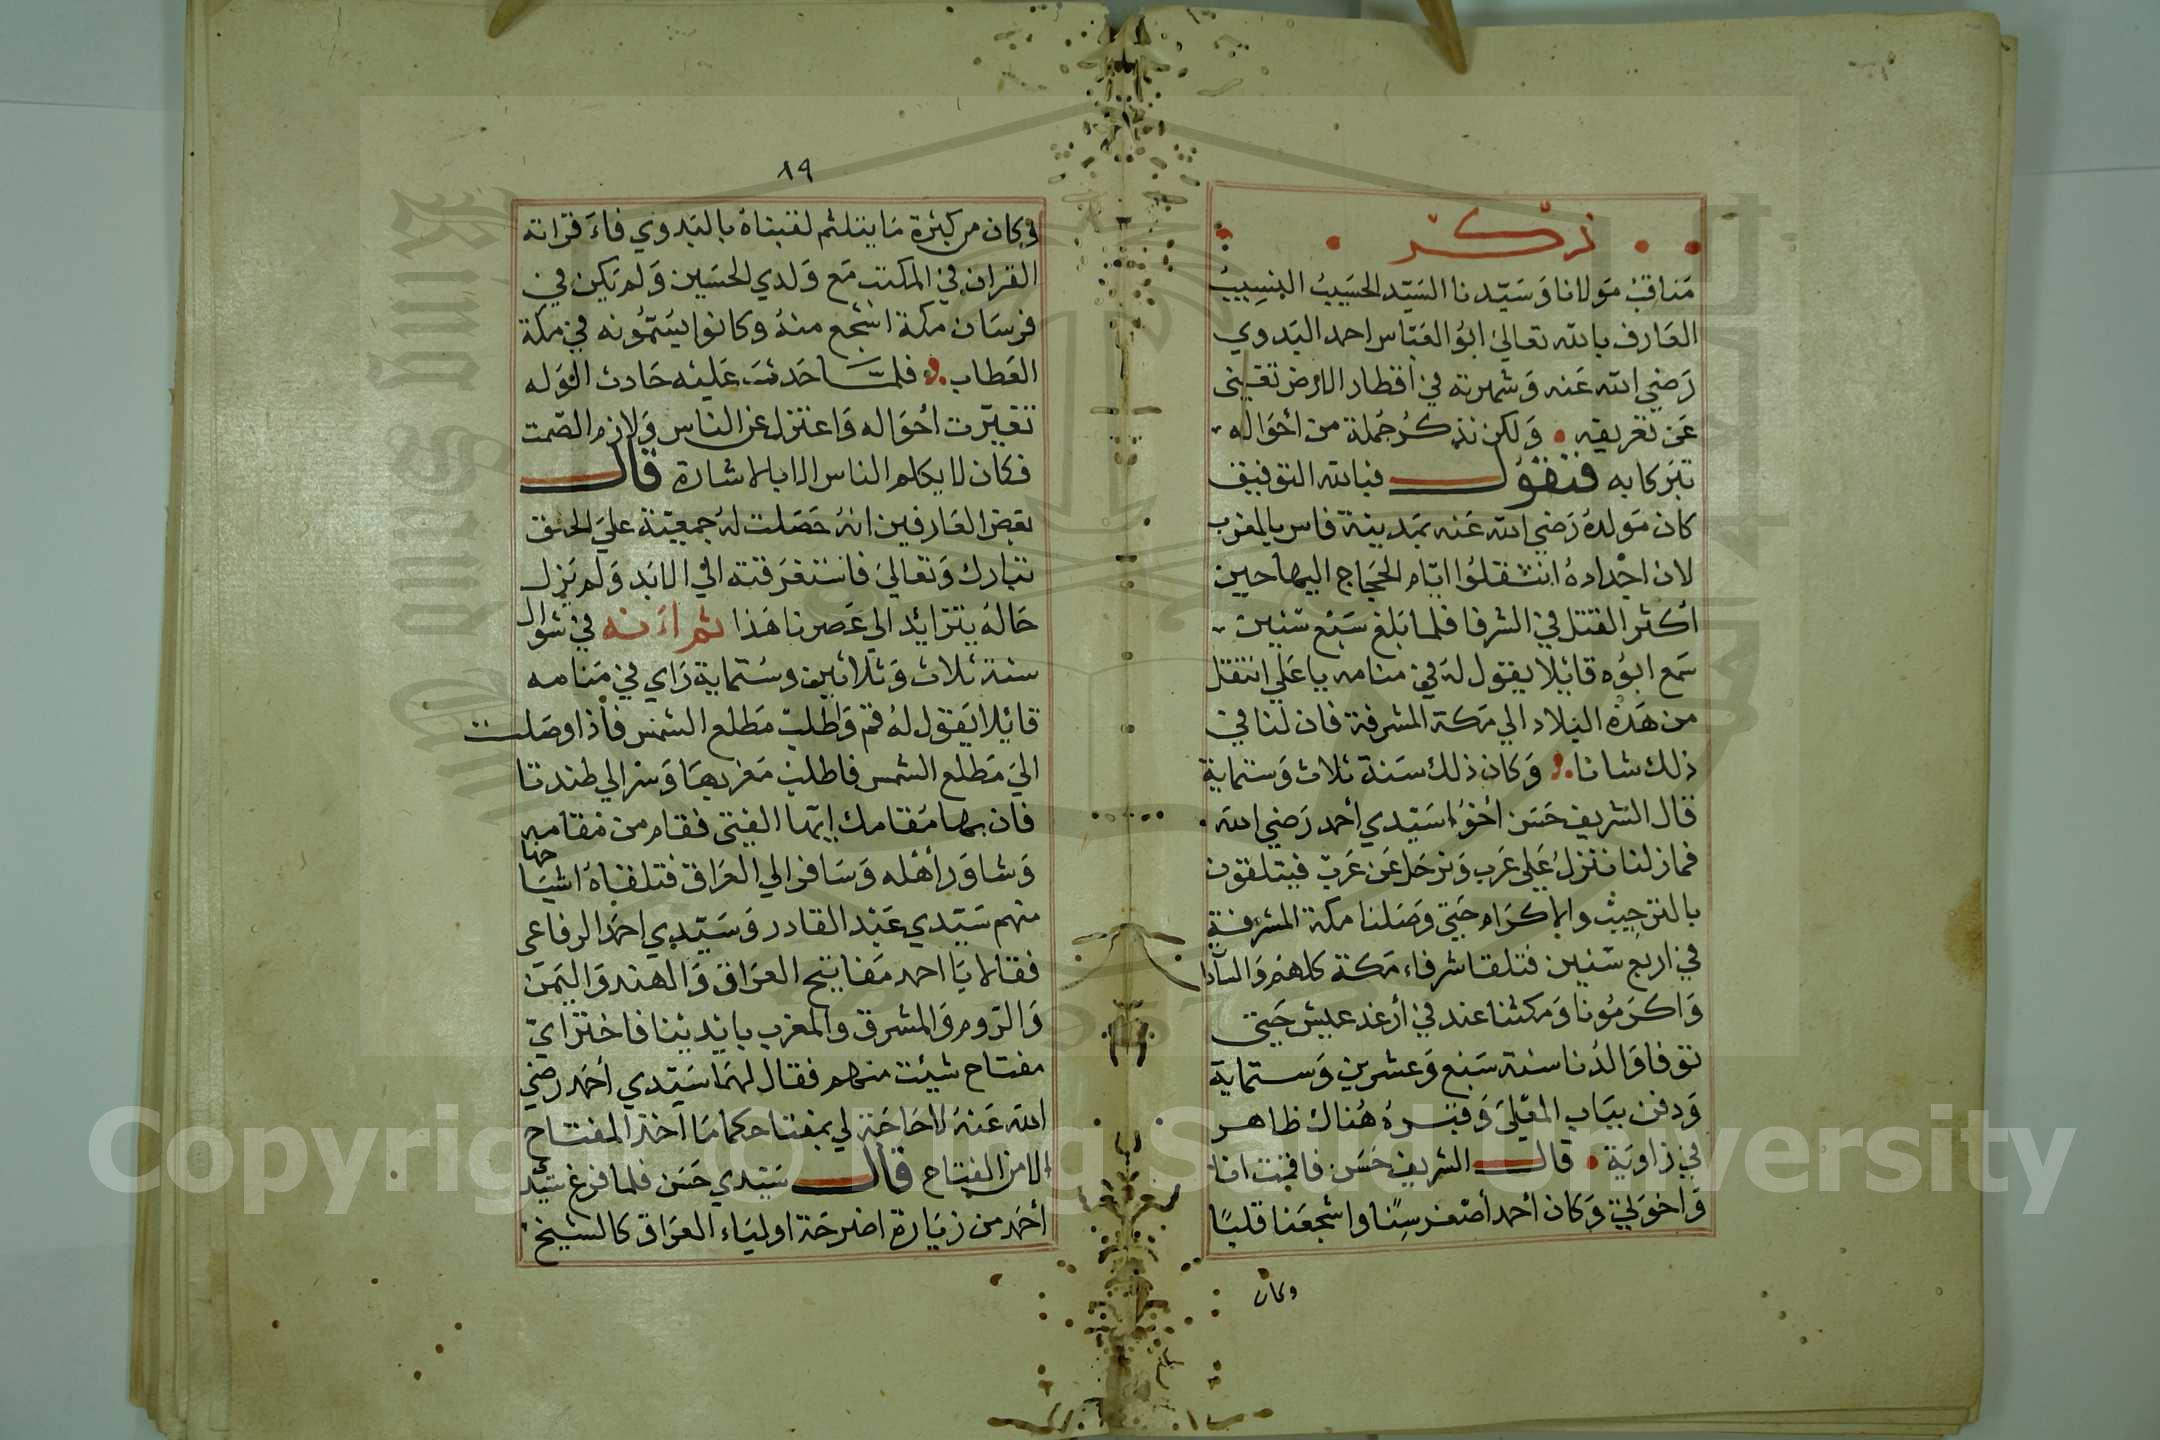 ذكر
مناقب مولانا وسيدنا السيد الحسيب النسيب
العارف بالله تعالى ابو العباس احمد البدوي
رضي الله عنه وشهرته في أقطار الارض تغنى
عن تعريفه ولكن نذكر جملة من أحواله
تبركا به فنقول فبالله التوفيق
كان مولده رضي الله عنه بمدينة فاس بالمغرب
لان اجداده انتقلوا ايام الحجاج اليها حين
أكثر القتل في الشرفا فلما بلغ سبع سنين
سمع ابوه قائلا يقول له في منامه يا علي انتقل
من هذه البلاد الي مكة المشرفة فان لنا في
ذلك شانا وكان ذلك سنة ثلاث وستماية
قال الشريف حسن أخو سيدي أحمد رضي الله
فما زلنا ننزل على عرب ونرحل عن عرب فيتلقون
بالترحيب والاكرام حتي وصلنا مكة المشرفة
في اربع سنين فتلقا شرفاء مكة كلهم
واكرمونا ومكثنا عند في أرغد عيش حتى
توفا والدنا سنة سبع وعشرين وستماية
ودفن بباب المعلى وقبره هناك ظاهر
في زاوية قال الشريف حسن فاقمت انا
واخوتي وكان أحمد أصغر سنا واشجعنا قلبا
وكان
١٩
وكان من كثرة ما يتلثم لقبناه بالبدوي فاقراته
القران في المكتب مع ولدي الحسين ولم يكن في
فرسان مكة اشجع منه وكانوا يسمونه في مكة
العطاب فلما حدثت عليه حادث الوله
تغيرت أحواله واعتزل عن الناس ولازم الصمت
فكان لا يكلم الناس الا بالاشارة قال
بعض العارفين انه حصلت له جمعية علي الحق
تبارك وتعالي فاستغرقته الي الابد ولم يزل
حاله يتزايد الي عصرنا هذا ثم انه في شوال
سنة ثلاث وثلاثين وستماية راي في منامه
قائلا يقول له قم واطلب مطلع الشمس فاذا وصلت
الي مطلع الشمس فاطلب مغربها وسر الي طندتا
فان بها مقامك ايها الفتى فقام من مقامه
وشاور أهله وسافر الي العراق فتلقاه اشياخها
منهم سيدي عبد القادر وسيدي احمد الرفاعي
فقالا يا احمد مفاتيح العراق والهند واليمن
والروم والمشرق والمغرب بايدينا فاختر اي
مفتاح شيئت منهم فقال لهما سيدي أحمد رضي
الله عنه لا حاجة لي بمفتاحكما ما آخذ المفتاح
الا من الفتاح قال سيدي حسن فلما فرغ سيد
أحمد من زيارة اضرحة اولياء العراق كالشيخ
Copyright © King Saud University